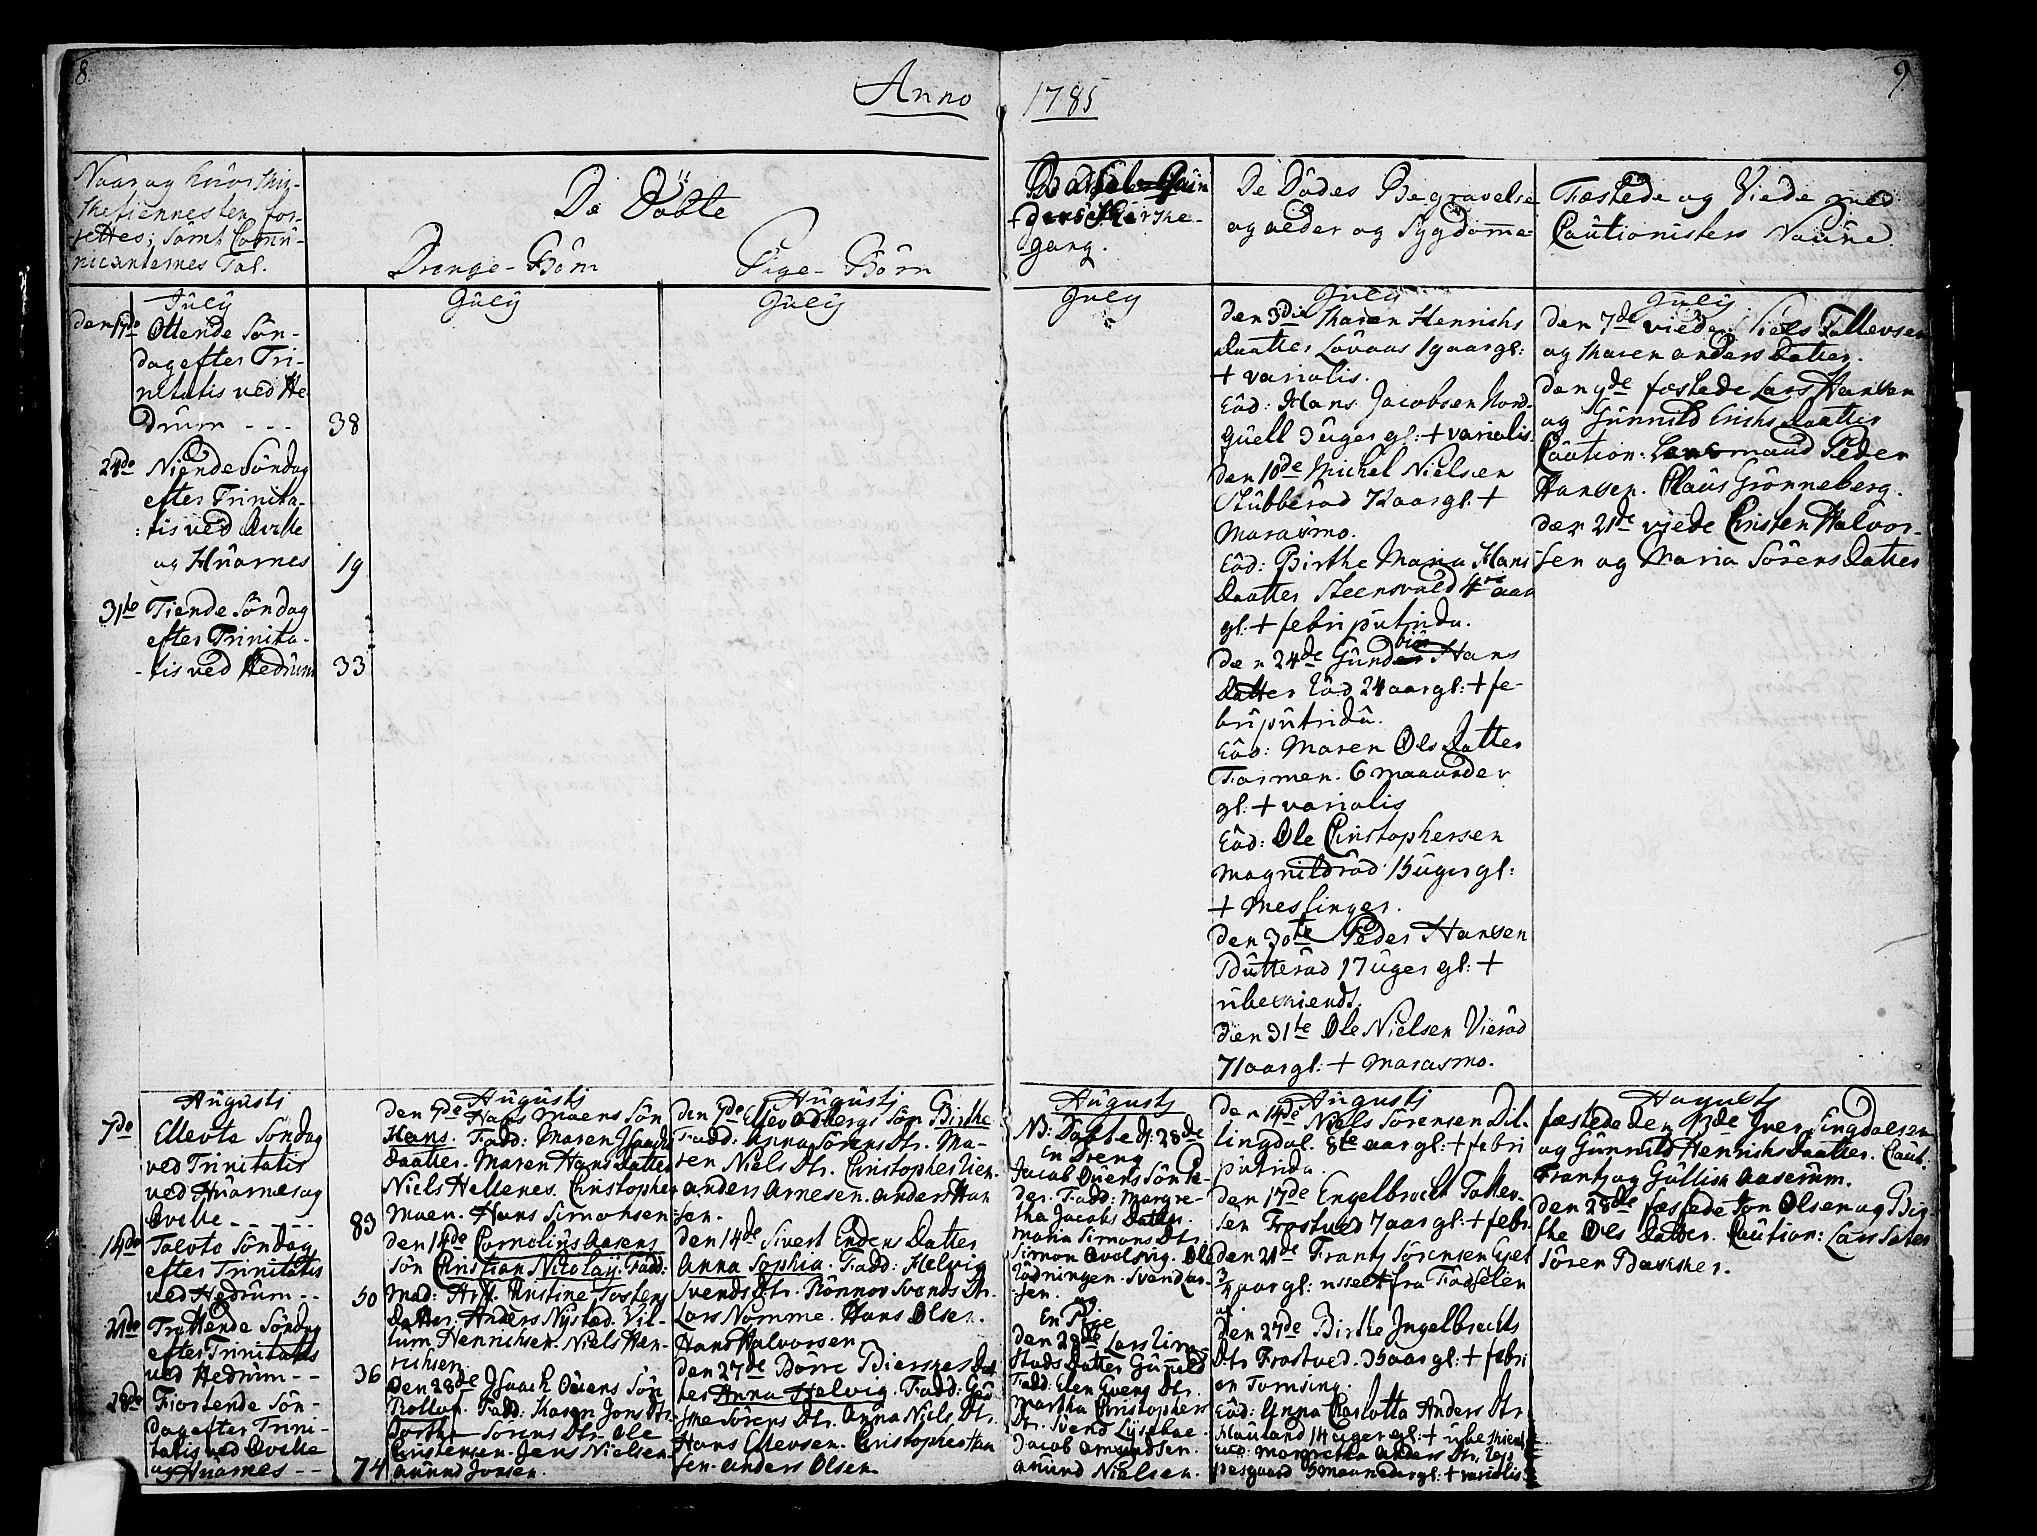 8.
Anno
1785
9
Naar og hvor Kir-
ketienesten for-
rettes; samt Commu-
nicanternes Tal.
De Döbte
Drenge-Börn
Pige-Börn
gang.
De Dödes Begravelse
og alder og Sygdomme
Fæstede og Viede med
Cautionisters Navne.
July
den 17de Ottende Sön-
dag efter Tri-
nitatis ved He
drum - - - 38
24de Niende Söndag
efter Trinita-
tis ved Qvelle
og Hvarnes 19
31te Tiende Söndag
efter Trinita-
tis ved Hedrum 33
July
July
July
July
den 3die Karen Henrichs
Daatter Lövaas 19 aar gl:
+ varialis.
Eöd: Hans Jacobsen Nord-
quell 3 uger gl: + varialis.
den 10de Michel Nielsen
Stubberöd 72 aar gl: +
Marasmo.
Eöd: Birthe Maria Hans
Daatter Steensvold 4re aar
gl: + febri putrida.
den 24de Gunbior Hans
Datter Eöd 24 aar gl: + fe-
bri putrida.
Eöd: Maren Ols Datter
Farmen. 6 maaneder
gl: + varialis
Eöd: Ole Christophersen
Magnildröd 15 uger gl:
+ Meslinger.
den 30te Peder Hansen
Butteröd 17 uger gl: +
ubekiendt.
den 31te Ole Nielsen Vieröd
71 aar gl: + Marasmo.
July
den 7de viede Niels Tollevsen
og Karen Anders Datter.
den 9de fæstede Lars Hansen
og Gunnild Erichs Daatter
Caution: Lensmand Peder
Hansen. Claus Grönneberg.
den 21de viede Christen Halvor-
sen og Maria Sörens Datter
Augusti
7de Ellevte Söndag
ved Trinitatis
ved Hvarnes og
Qvelle - - - - 83
14de Tolvte Söndag
efter Trinitatis
ved Hedrum - - 50
21de Trettende Söndag
efter Trinitatis
ved Hedrum - - 36
28de Fiortende Sön-
dag efter Trini-
tatis ved Qvelle
og Hvarnes - - 74
Augusti
den 7de Hans Moens Sön
Hans. Fadd: Maren Isaachs
Daatter. Maren Hans Datter
Niels Hellenes. Christopher
Moen. Hans Simonsen
den 14de Cornelius Aasens
Sön Christian Nicolay. Fadd:
Mad: Arff. Christine Tostens
Datter. Anders Nysted. Vil-
lum Henrichsen. Niels Hen-
richsen
den 28de Isaach Övens Sön
Rollof. Fadd: Karen Jons Dtr.
Dorthe Sörens Dtr. Ole
Christensen. Jens Nielsen
Amund Jonsen.
Augusti
den 7de Ellev Odbergs Sön Birthe
Fadd: Anna Sörens Dtr. Ma-
ren Niels Dtr. Christopher Lien.
Anders Arnesen. Anders Han
sen.
den 14de Sivert Endens Datter
Anna Sophia. Fadd: Helvig
Svends Dtr. Rönnov Svends Dtr.
Lars Nomme. Hans Olsen.
Hans Halvorsen
den 27de Börre Bierskes Dat
ter Anna Helvig. Fadd:
Sörens Dtr. Anna Niels Dtr.
Hans Ellevsen. Christopher Han
sen. Anders Olsen.
Augusti
NB: Döbte d. 28de
En Dreng
Jacob Övens Sön Pe-
der. Fadd: Margre-
tha Jacobs Datter.
Maria Simons Dtr.
Simon Qvelsrig. Ole
Rödningen. Svend Lar-
sen.
og
En Pige
den 28de Lars Lim-
stads Datter Gunnild
Fadd: Elen Evens Dtr.
Martha Christophers
Dtr. Svend Lysebne.
Jacob Amundsen.
Amund Nielsen.
Augusti
den 14de Niels Sörensen Dil-
lingdal. 8te aar gl: + febri
putrida.
den 17de Engelbrecht Tollev-
sen Frostved 7 aar gl: + febri
den 21de Frantz Sörensen
3/4 aar gl:
den 27de Birthe Ingelbrechts
Dtr Frostved. 35 aar gl: + febri
en Tvinsing.
Eöd: Anna Charlotta Anders Dtr
Kauland 14 uger gl: + ubekiendt
Margretha Anders Dtr.
5 maaneder gl: + varialis
Augusti
fæstede den 13de Iver Lingdalsen
og Gunnild Henrichs Daatter. Caut:
Frantz og Gullich Aaserum.
den 28de fæstede Jon Olsen og Bir-
the Ols Datter. Caution: Lars Sater
Sören Bakker.